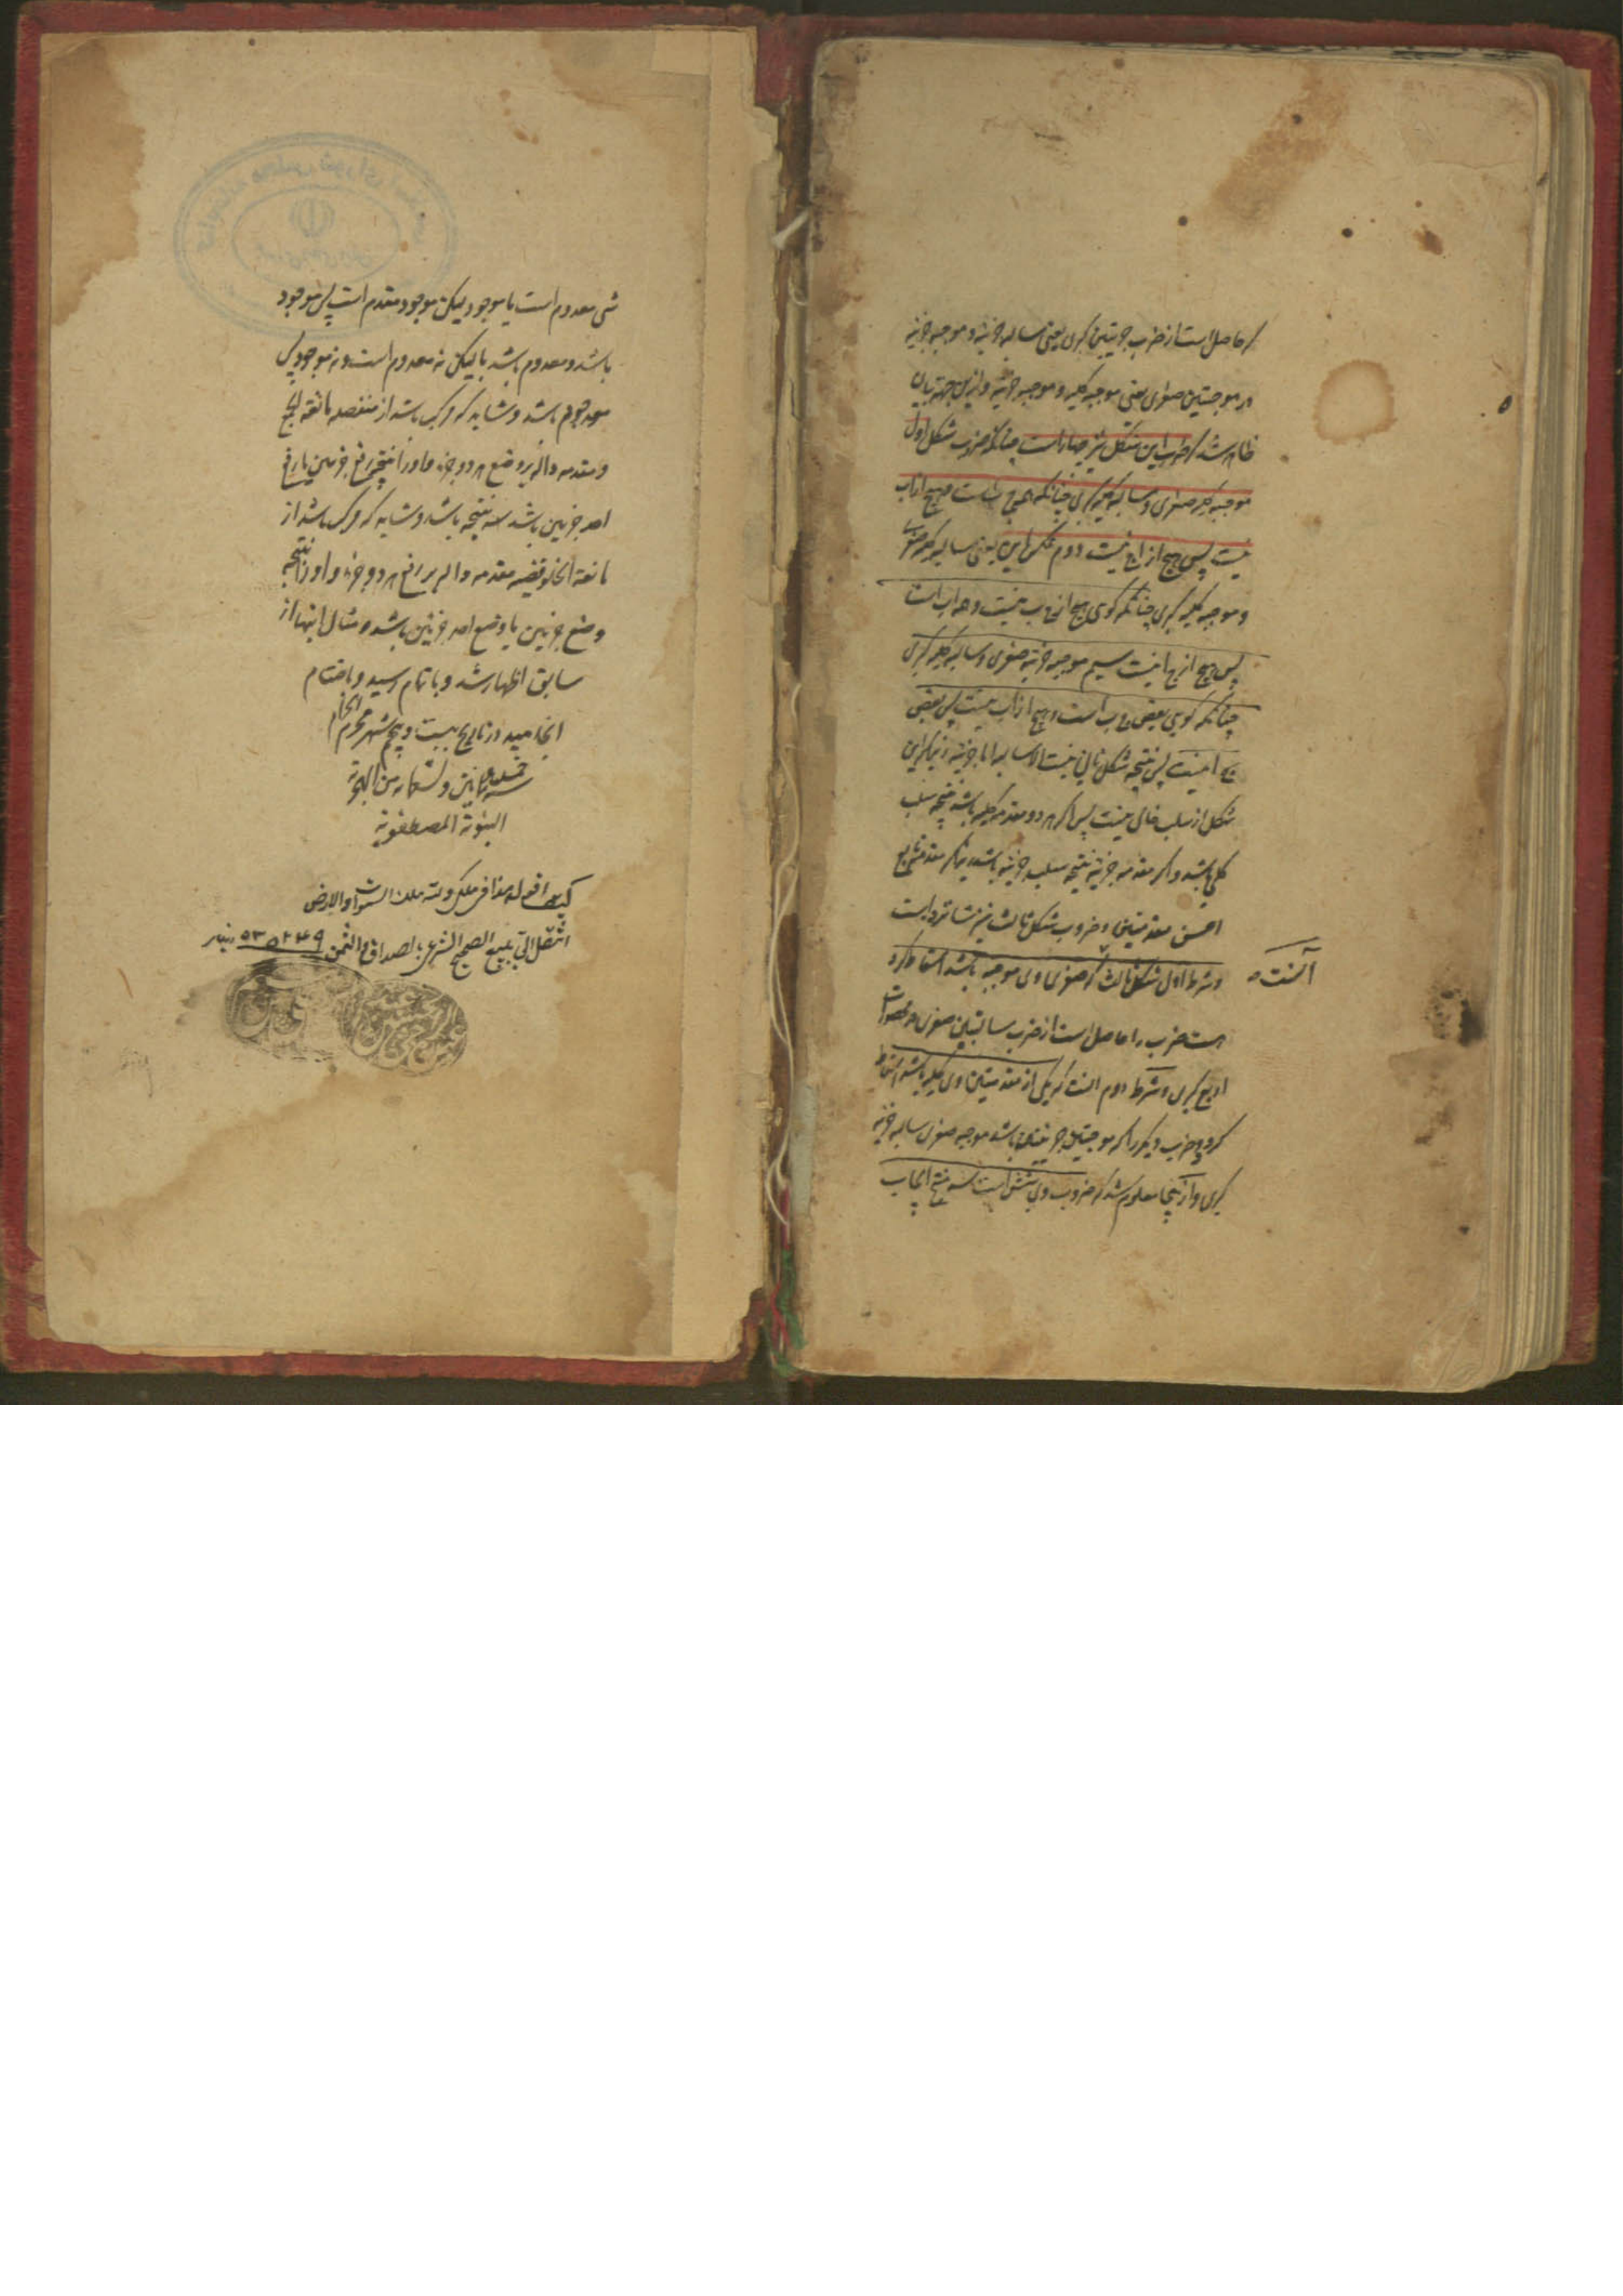 که حاصل است از ضرب جزئیتین کبری یعنی سالبه جزئیه و موجبه جزئیه
در موجبتین صغری یعنی موجبه کلیه و موجبه جزئیه و ازین جهة بیان
ظاهر شد که ضرب این شکل نیز چهار است چنانکه ضروب شکل اول
موجبه کلیه صغری و سالبه کلیه کبری چنانکه همه ج ب است و هیچ از ا ب
نیست پس هیچ از ج ا نیست دوم عکس این یعنی سالبه کلیه صغری
و موجبه کلیه کبری چنانکه کوی هیچ از ج ب نیست و همه ا ب است
پس هیچ از ج ا نیست سیم موجبه جزئیه صغری و سالبه کلیه کبری
چنانکه کویی بعضی ج ب است و هیچ از ا ب نیست پس بعضی
ج ا نیست پس نتیجه شکل ثانی نیست الا سالبه اما جزئیه زیرا که این
شکل از سلب خالی نیست پس اکر هر دو مقدمه کلیه باشد نتیجه سلب
کلی باشد و اکر مقدمه جزئیه نتیجه سلب جزئیه باشد زیرا که مقدمه تابع
اخس مقدمتین و ضروب شکل ثالث نیز شانزده است
وشرط اول شکل ثالث که صغری وی موجبه باشد اسقاط کرد
آنست ه
هشت ضرب را حاصل است از ضرب سالبتین صغری در محصورات
اربع کبری و شرط دوم انست که یکی از مقدمتین وی کلیه باشد اسقاط
کرد دو ضرب دیکر را که موجبتین جزئیتین باشد موجبه صغری سالبه جزئیه
کبری و از اینجا معلوم شد که ضروب وی شش است سه منتج ایجاب
شی معدوم است یا موجود لیکن موجود مقدم است پس موجود
باشد و معدوم باشد یا لیکن نه معدوم است و نه موجود پس
باشد و شاید که مرکب باشد از منفصله مانعة الجمع
و مقدمه داله بر وضع هر دو جزء و اورا نتیجه رفع جزئین یا رفع
احد جزئین باشد سه نتیجه باشد و شاید که مرکب باشد از
مانعة الخلو قضیه مقدمه داله بر رفع هر دو جزء و اورا نتیجه
وضع جزئین یا وضع احد جزئین باشد و مثال اینها از
سابق اظهار شد و باتمام رسید و باختتام
انجامید در تاریخ بیست و پنجم شهر محرم الحرام
سنه خمس و ثمانین و تسعمایه من الهجرة
النبویة المصطفویة
کیف اقول هذا فی ملکی ولله ملک السموات والارض
انتقل الی بالبیع الصحیح الشرعی